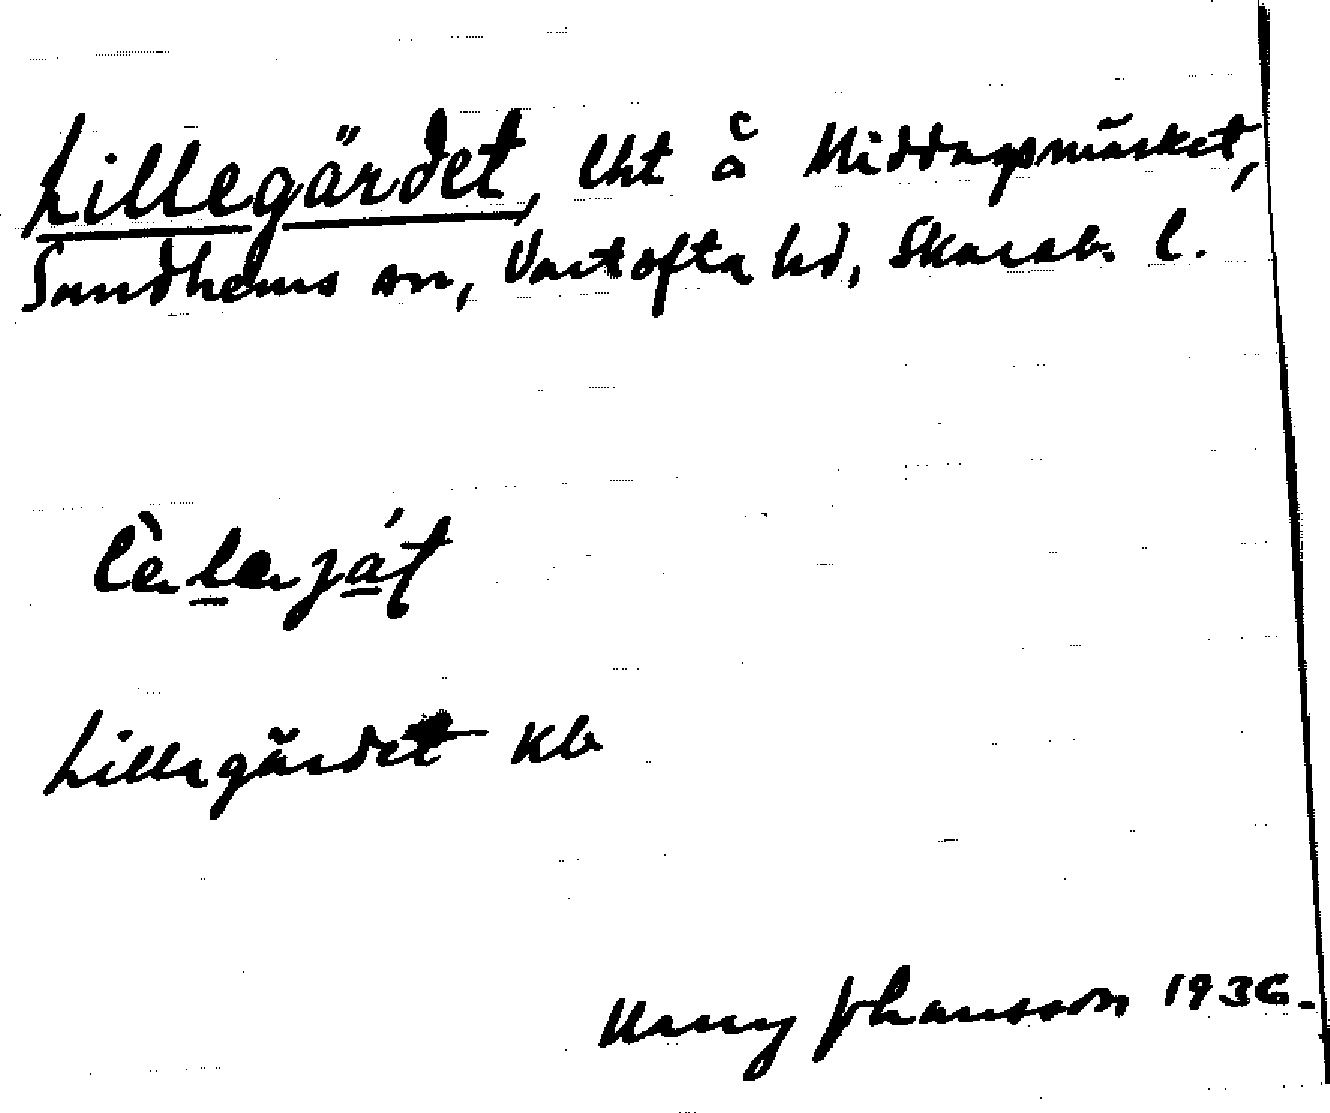 Lillegärdet, lht å Middagsmärket,
Sandhems sn, Vartofta hd, Skarab. l.
Lillegärdet Kb
Harry Johansson 1936.